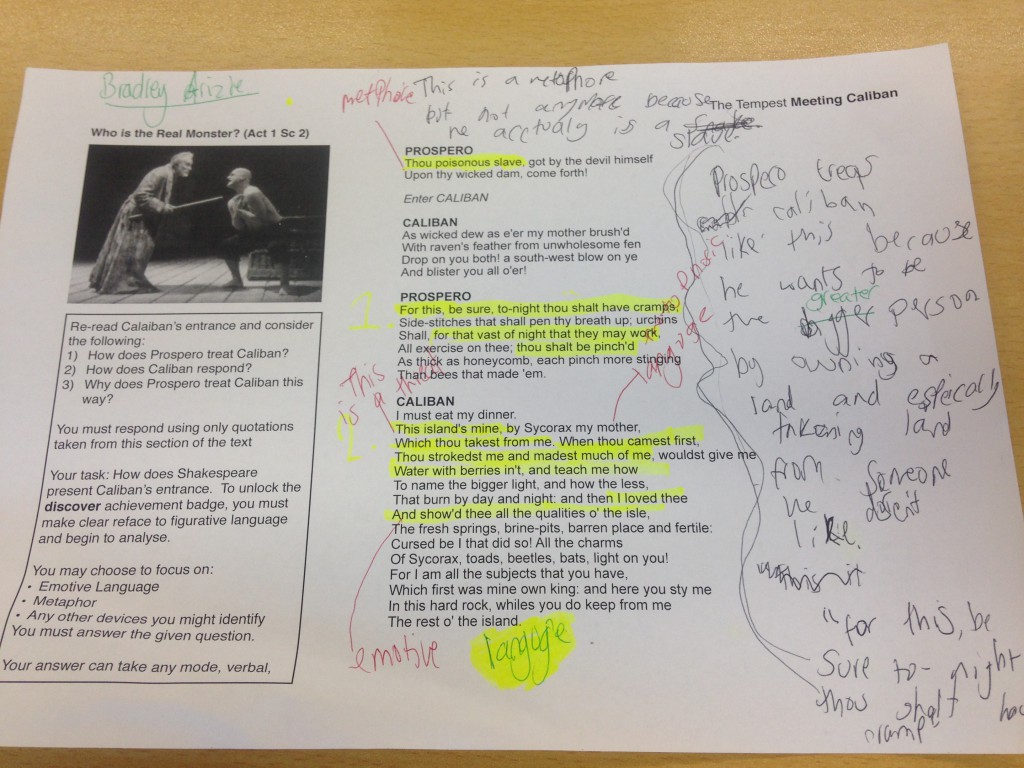 Bradley
metphore
This is a metaphore
but not anymore because
he acctualy is a
slave.
The Tempest Meeting Caliban
Who is the Real Monster? (Act 1 Sc 2)
Re-read Calaiban's entrance and consider
the following:
1) How does Prospero treat Caliban?
2) How does Caliban respond?
3) Why does Prospero treat Caliban this
way?
You must respond using only quotations
taken from this section of the text
Your task: How does Shakespeare
present Caliban's entrance. To unlock the
discover achievement badge, you must
make clear reface to figurative language
and begin to analyse.
You may choose to focus on:
• Emotive Language
• Metaphor
• Any other devices you might identify
You must answer the given question.
Your answer can take any mode, verbal,
PROSPERO
Thou poisonous slave, got by the devil himself
Upon thy wicked dam, come forth!
Enter CALIBAN
CALIBAN
As wicked dew as e'er my mother brush'd
With raven's feather from unwholesome fen
Drop on you both! a south-west blow on ye
And blister you all o'er!
PROSPERO
1.
For this, be sure, to-night thou shalt have cramps,
Side-stitches that shall pen thy breath up; urchins
Shall, for that vast of night that they may work,
All exercise on thee; thou shalt be pinch'd
As thick as honeycomb, each pinch more stinging
Than bees that made 'em.
CALIBAN
I must eat my dinner.
This island's mine, by Sycorax my mother,
Which thou takest from me. When thou camest first,
Thou strokedst me and madest much of me, wouldst give me
Water with berries in't, and teach me how
To name the bigger light, and how the less,
That burn by day and night: and then I loved thee
And show'd thee all the qualities o' the isle,
The fresh springs, brine-pits, barren place and fertile:
Cursed be I that did so! All the charms
Of Sycorax, toads, beetles, bats, light on you!
For I am all the subjects that you have,
Which first was mine own king: and here you sty me
In this hard rock, whiles you do keep from me
The rest o' the island.
This
is a
emotive
langoge
Prospero treas
caliban
like this because
he wants to be
the greater person
by owning a
land and especially
takening land
from someone
he
like.
"for this, be
sure to-night
thou shalt hav
cramp